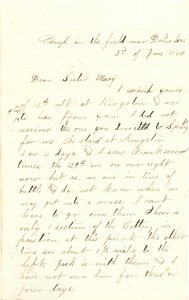 Camp in the field near Dallas Geo
3d of June 1864
Dear Sister Mary
I received yours
of 12th ult at Kingston &
was from you I did not
receive the one you directed to
for me. We staid at Kingston
3 or 4 days & I saw Frank several
times the 129th are on our right
now but we are in line of
battle & do not know when we
may get into a muss I cant
leave to go over them There is
only 1 section of the Battery in
position at this point. The other
two are about 1½ miles to the
left. Jack is with them & I
have not seen him for three or
four days.